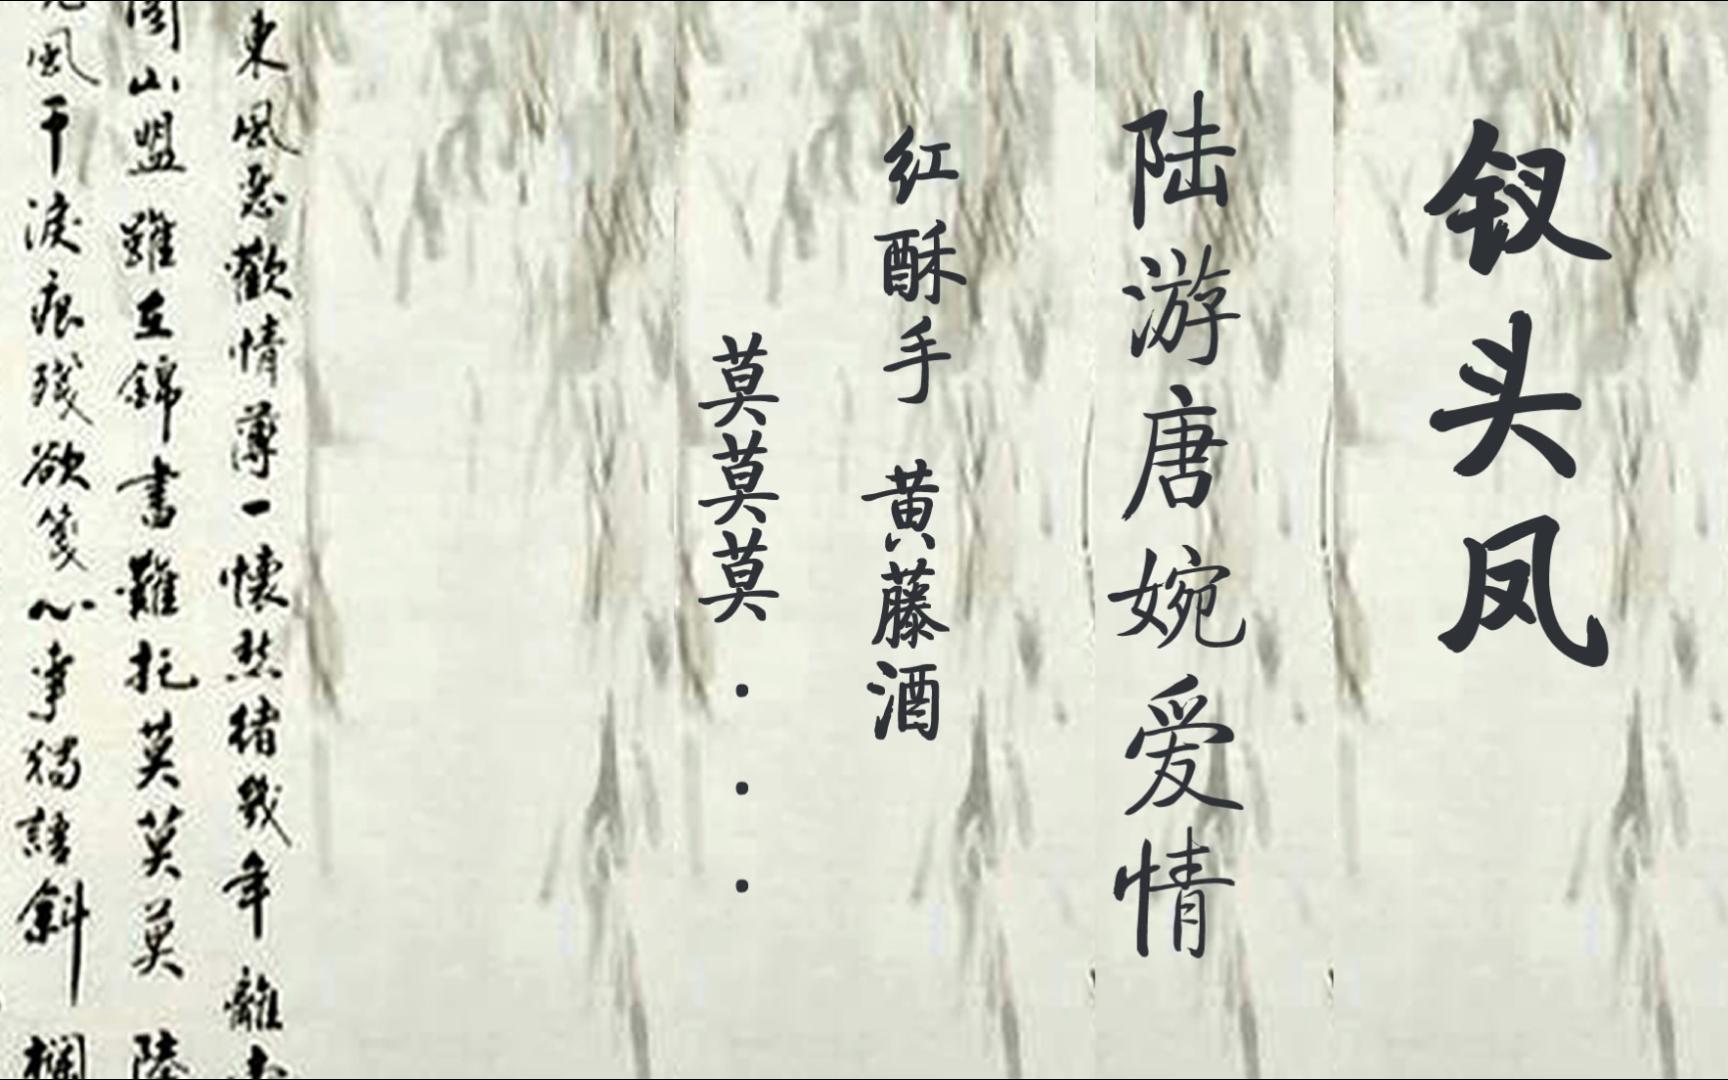 钗头凤
陆游唐婉爱情
红酥手 黄藤酒
莫莫莫...
東風惡歡情薄一懷愁緒幾年離
閣山盟雖在錦書難托莫莫莫 陸
風干淚痕殘欲箋心事獨語斜 欄